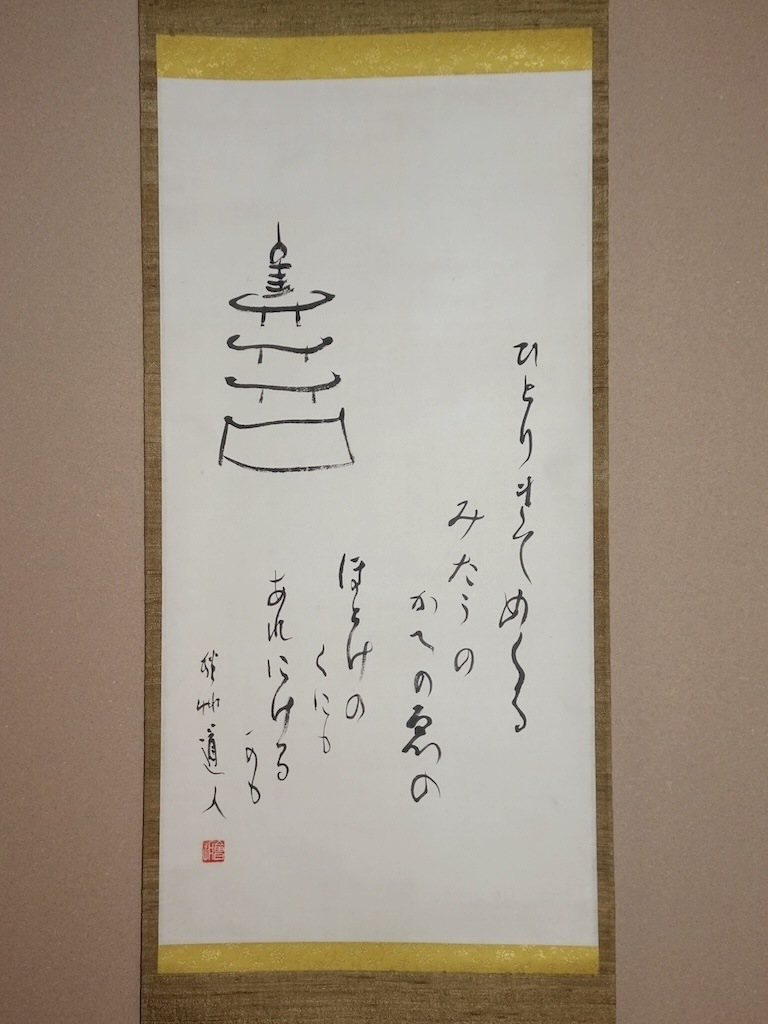 ひとりきてめくる
みたうの
かへのゑの
ほとけの
くにも
あれにける
かも
秋艸道人